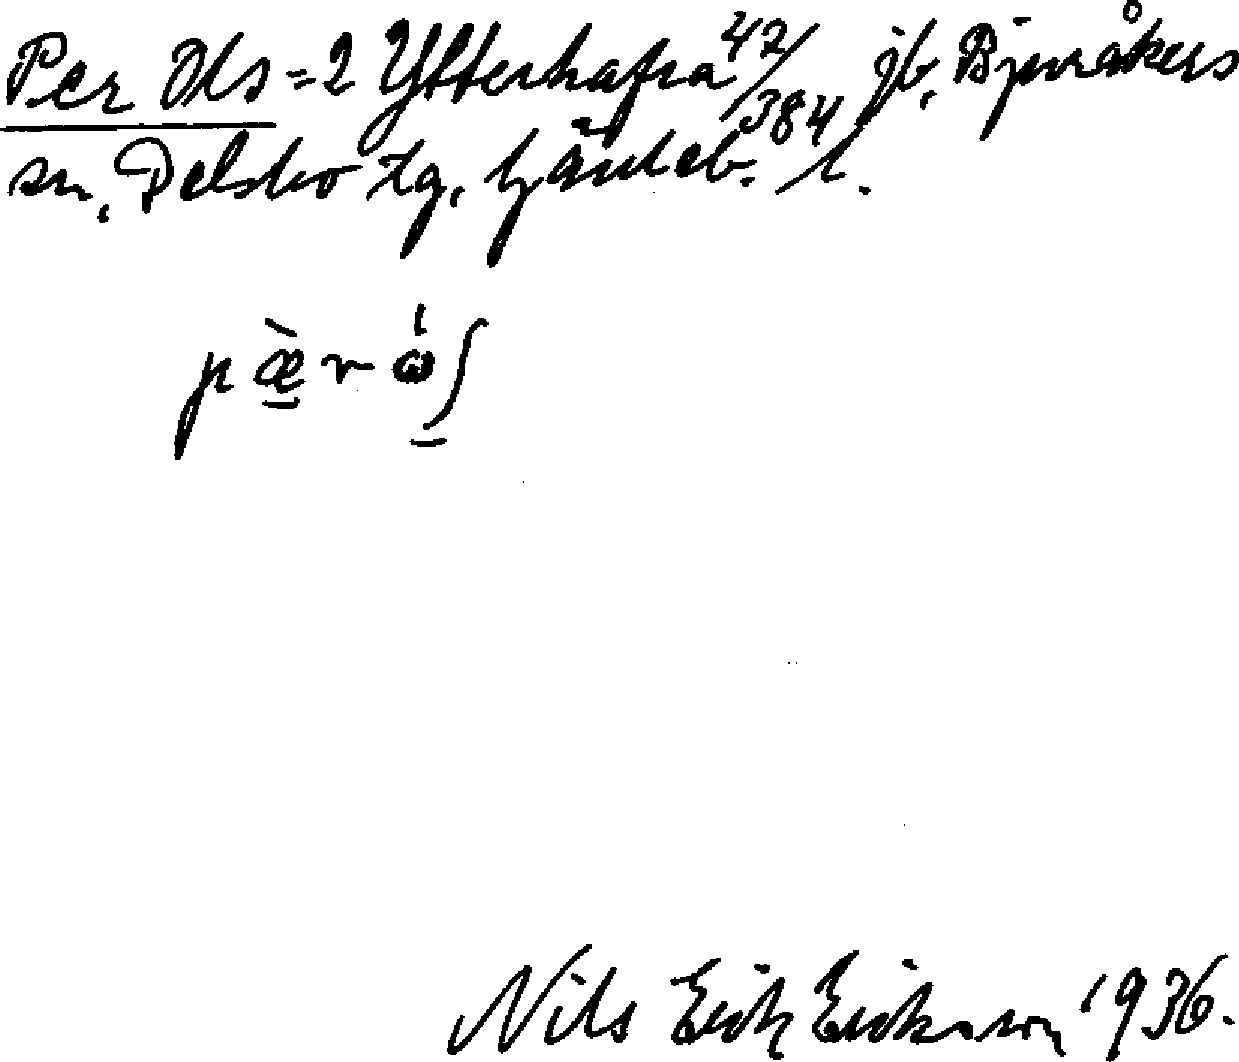 Per Ols = 2 Ytterhafra 42/384 jb. Bjuråkers
sn, Delsbo tg, Gävleb. l.
pæ̀rωʃ
Nils Erik Erikson 1936.